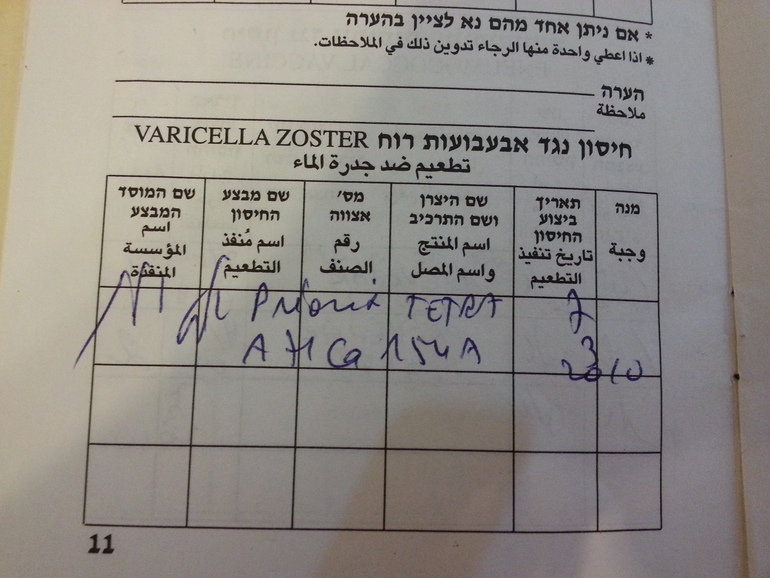 * אם ניתן אחד מהם נא לציין בהערה
* اذا اعطي واحدة منها الرجاء تدوين ذلك في الملاحظات.
הערה
ملاحظة
חיסון נגד אבעבועות רוח VARICELLA ZOSTER
تطعيم ضد جدرة الماء
מנה
وجبة
תאריך ביצוע החיסון
تاريخ تنفيذ التطعيم
שם היצרן ושם התרכיב
اسم المنتج واسم المصل
מס' אצווה
رقم الصنف
שם מבצע החיסון
اسم مُنفذ التطعيم
שם המוסד המבצע
اسم المؤسسة المنفذة
Priorix TETRA 7
A71Ca154A 3
2010
11